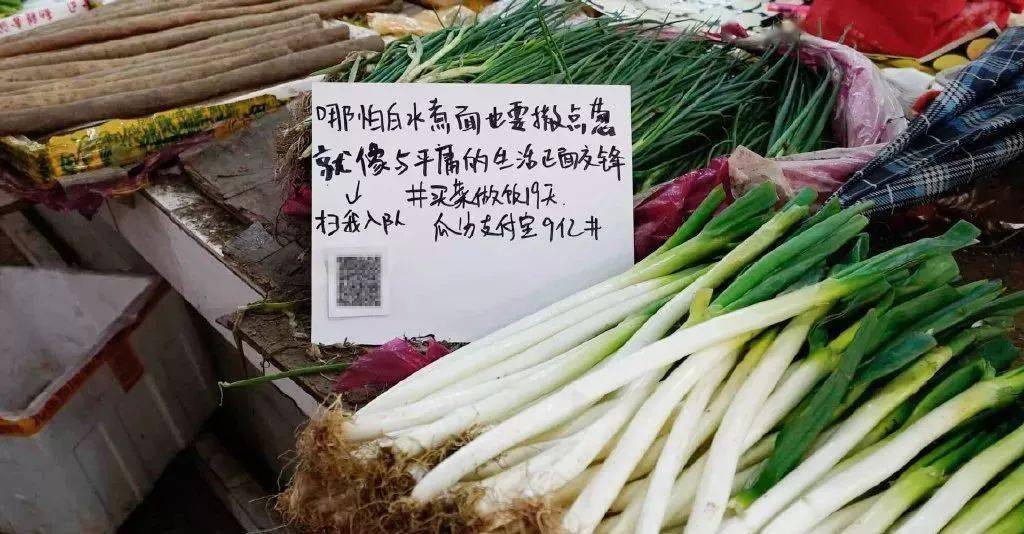 哪怕白水煮面也要撒点葱
就像与平庸的生活正面交锋
↓ #买菜做饭19天.
扫我入队 瓜分支付宝9亿#